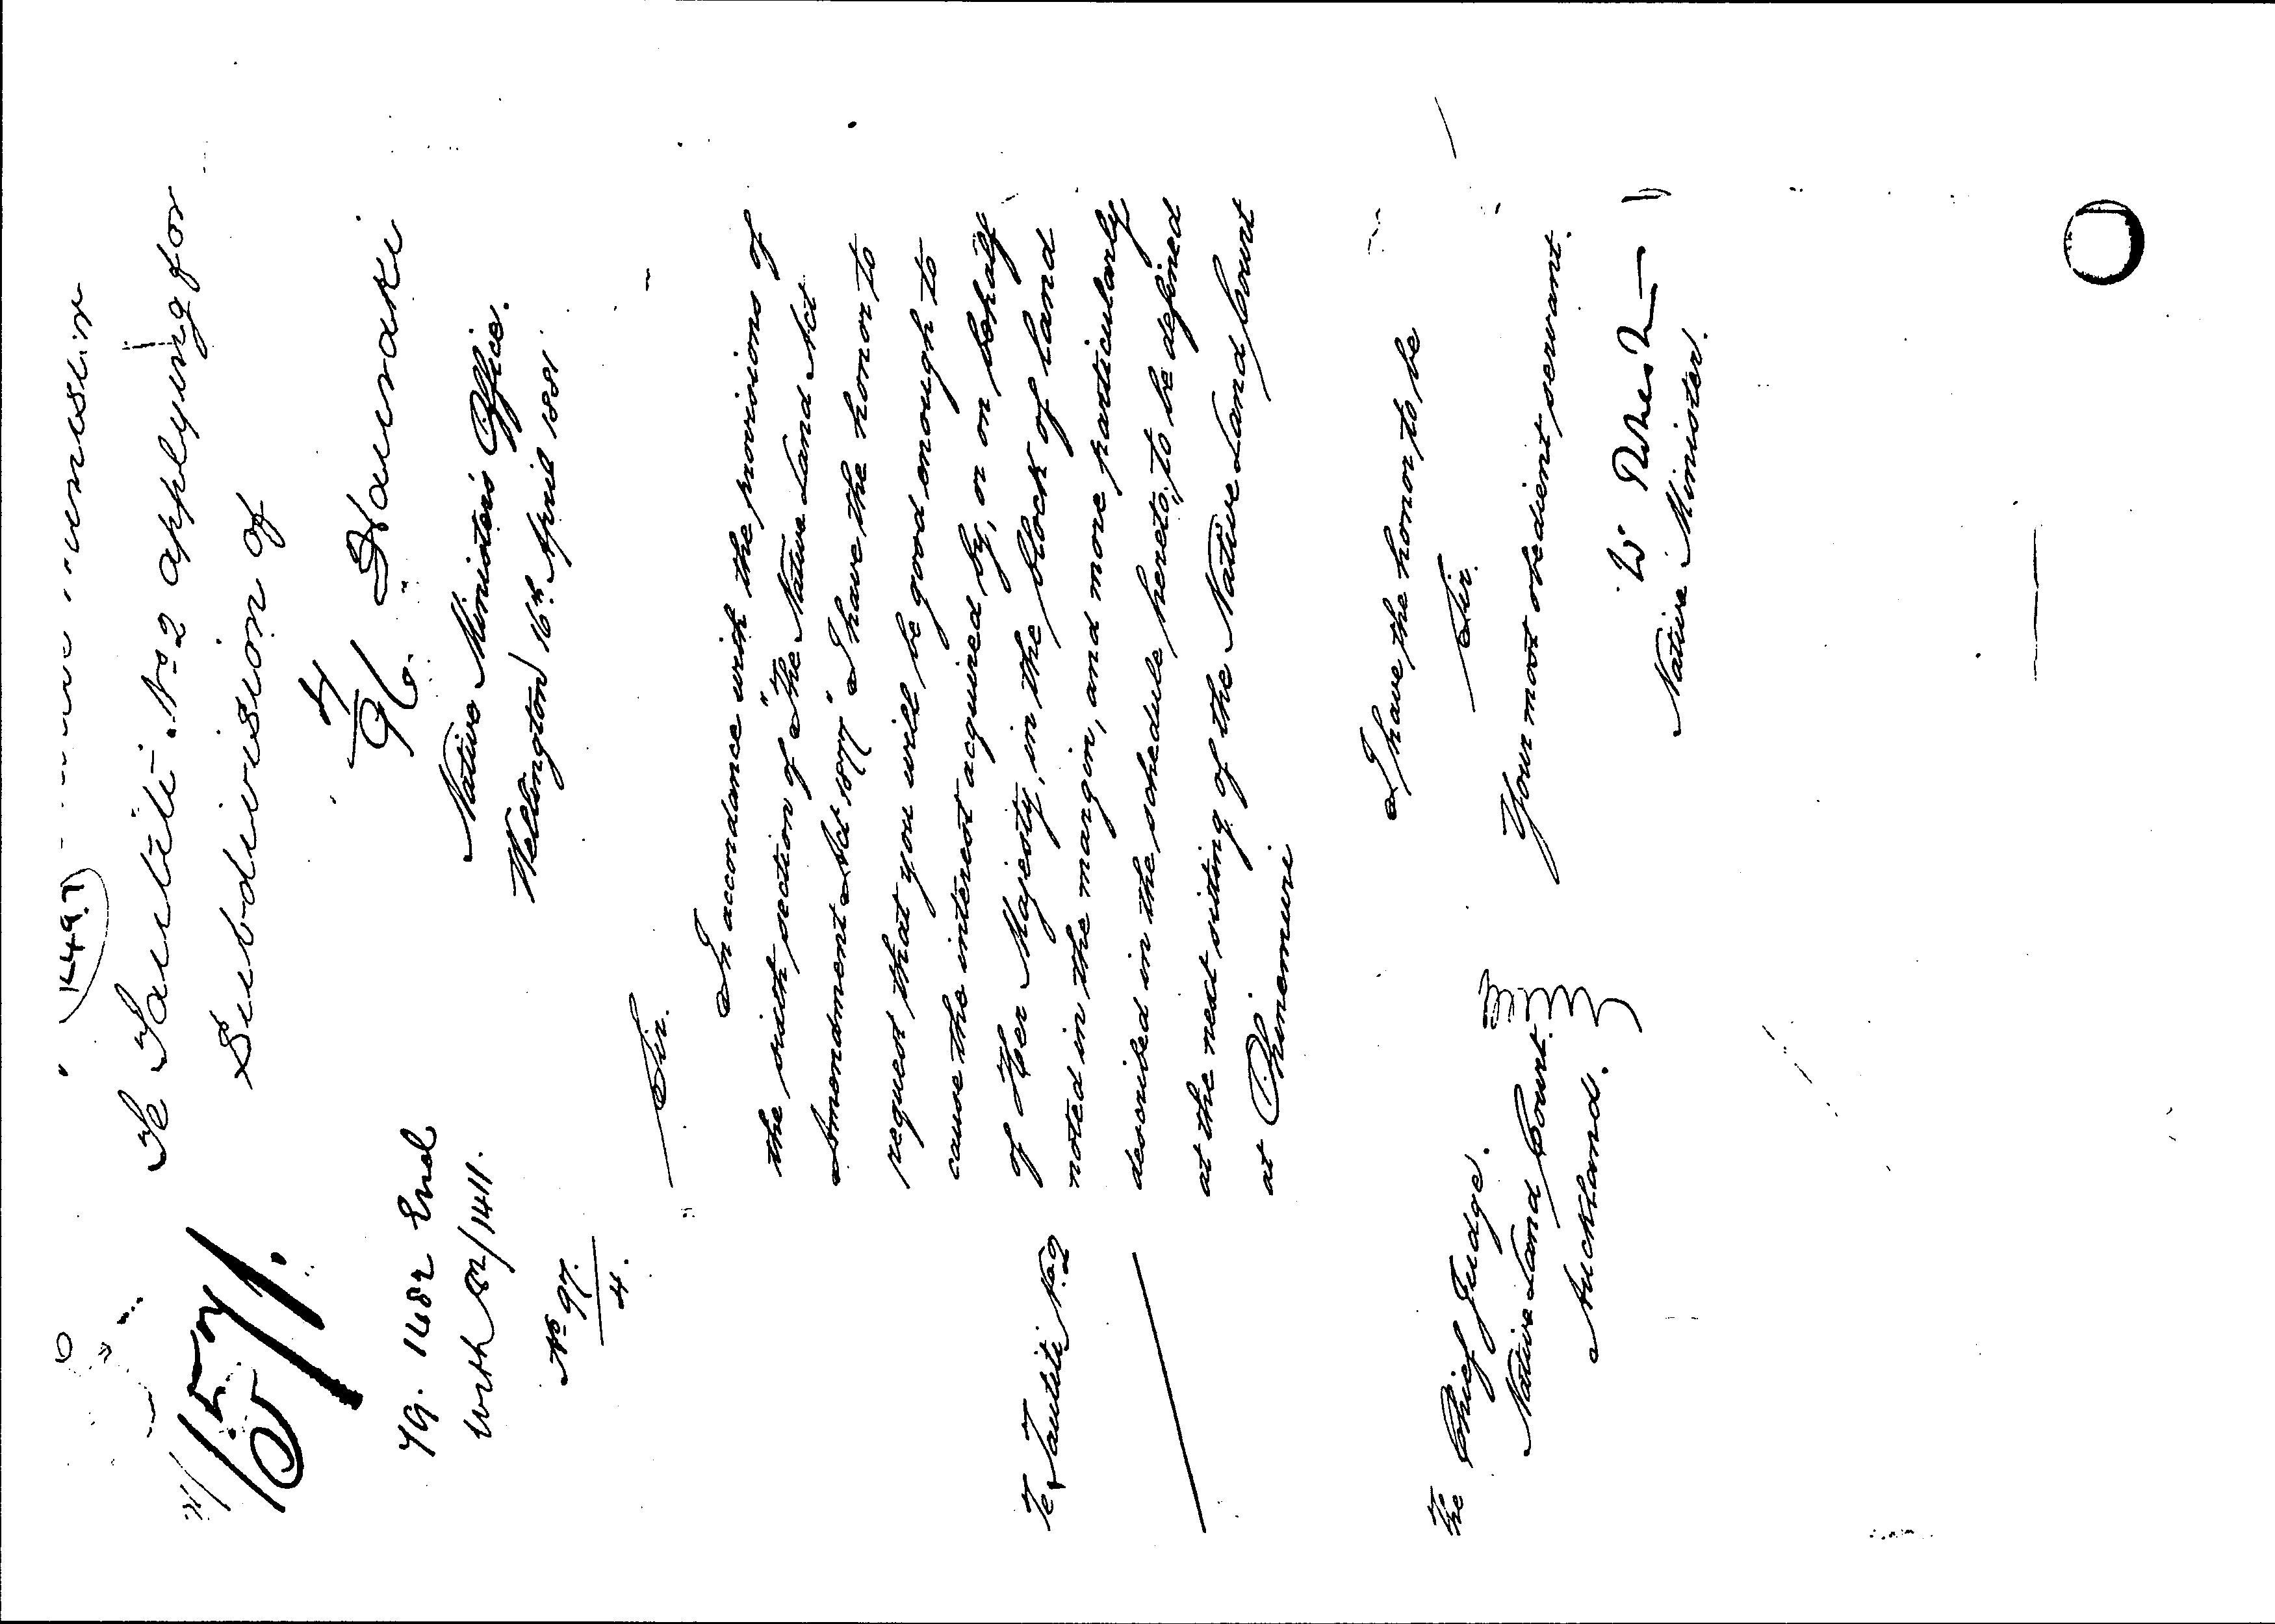 1449
Te Tautiti. No 2 applying for
Subdivision of
4/96. Hauraki
79. 1482 Encl
with 82/1411.
No 97.
4.
Native Minister's Office.
Wellington 16th April 1881
Sir.
In accordance with the provisions of
the sixth section of "The Native Land Act
Amendment Act 1877" I have the honor to
request that you will be good enough to
cause the interest acquired by, or on behalf
of Her Majesty, in the block of land
noted in the margin, and more particularly
described in the schedule hereto, to be defined
at the next sitting of the Native Land Court
at Ohinemuri
Te Tautiti No. 2
I have the honor to be
Sir.
Your most obedient servant.
W
Native Minister.
The Chief Judge.
Native Land Court.
Auckland.